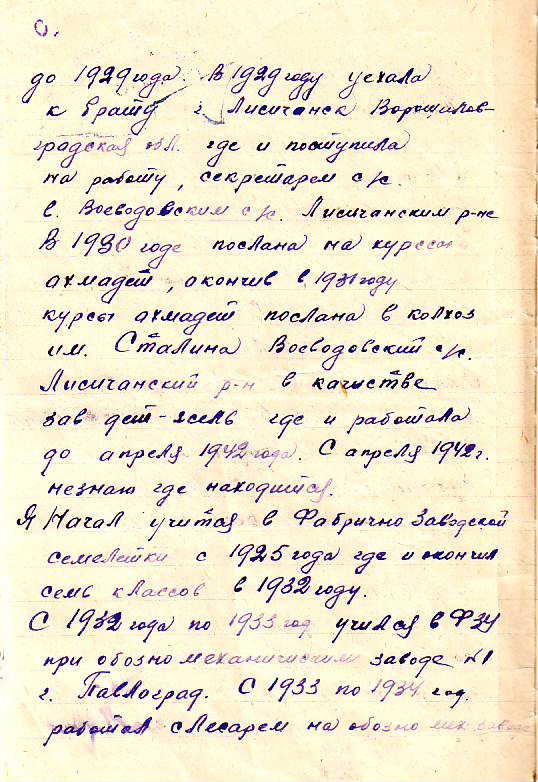 6.
до 1929 года. В 1929 году уехала
к брату г. Лисичанск Ворошилов-
градская обл. где и поступила
на работу, секретарем с/с.
в. Воеводовским с/с. Лисичанским р-не
В 1930 годе послана на курссы
ахмадет, окончив в 1931 году
курсы ахмадет послана в колхоз
им. Сталина Воеводовский с/с.
Лисичанский р-н в качистве
зав дет-ясель где и работала
до апреля 1942 года. С апреля 1942 г.
незнаю где находится.
Я Начал учится в Фабрично Заводской
семелетки с 1925 года где и окончил
семь классов в 1932 году.
С 1932 года по 1933 год учился в ФЗУ
при обозно механичиским заводе №1
г. Павлоград. С 1933 по 1934 год.
работал слесарем на обозно мех заводе